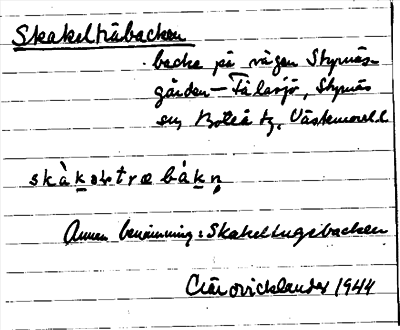 Skakelträbacken
backe på vägen Styrnäs-
gården - Tålasjö, Styrnäs
sn, Boteå tg, Västernorrl. l.
skàkəltræbákn̥
Annan benämning: Skakellugsbacken
Clär 1944